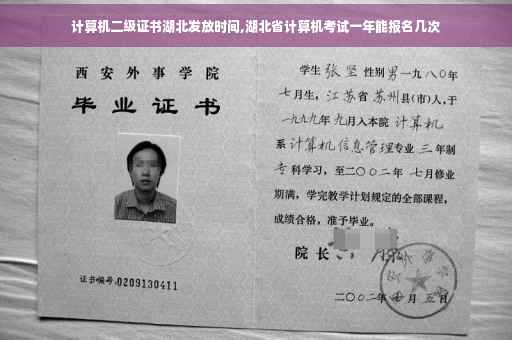 计算机二级证书湖北发放时间,湖北省计算机考试一年能报名几次
西安外事学院
毕业证书
证书编号:0209130411
学生 张坚 性别 男 一九八〇年
七月生,江苏省 苏州县(市)人,于
一九九九年 九月入本院 计算机
系 计算机信息管理专业 三 年制
专 科学习,至二〇〇二年 七月修业
期满,学完教学计划规定的全部课程,
成绩合格,准予毕业。
院长
二〇〇二年 月 五日